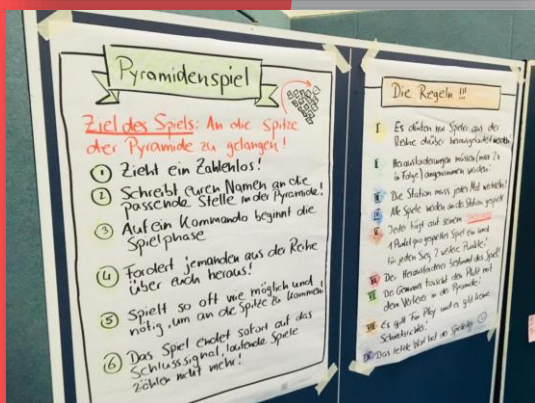 Pyramidenspiel
Ziel des Spiels: An die Spitze
der Pyramide zu gelangen!
1 Zieht ein Zahlenlos!
2 Schreibt euren Namen an die
passende Stelle in der Pyramide!
3 Auf ein Kommando beginnt die
Spielphase
4 Fordert jemanden aus der Reihe
über euch heraus!
5 Spielt so oft wie möglich und
nötig, um an die Spitze zu kommen!
6 Das Spiel endet sofort auf das
Schlusssignal, laufende Spiele
zählen nicht mehr!
Die Regeln !!!
I Es dürfen nur Spieler aus der
Reihe drüber herausgefordert werden!
II Herausforderungen müssen (max. 2x
in Folge) angenommen werden!
III Die Station muss jedes Mal wechseln!
IV Alle Spiele werden an der Station gespielt
V Jeder trägt auf seinem
1 Punkt pro gespieltes Spiel ein und
für jeden Sieg 2 weitere Punkte!
VI Der Herausforderer bestimmt das Spiel!
VII Der Gewinner tauscht den Platz mit
dem Verlierer in der Pyramide!
VIII Es gilt Fair Play und es gibt keine
Schiedsrichter!
IX Das letzte Wort hat